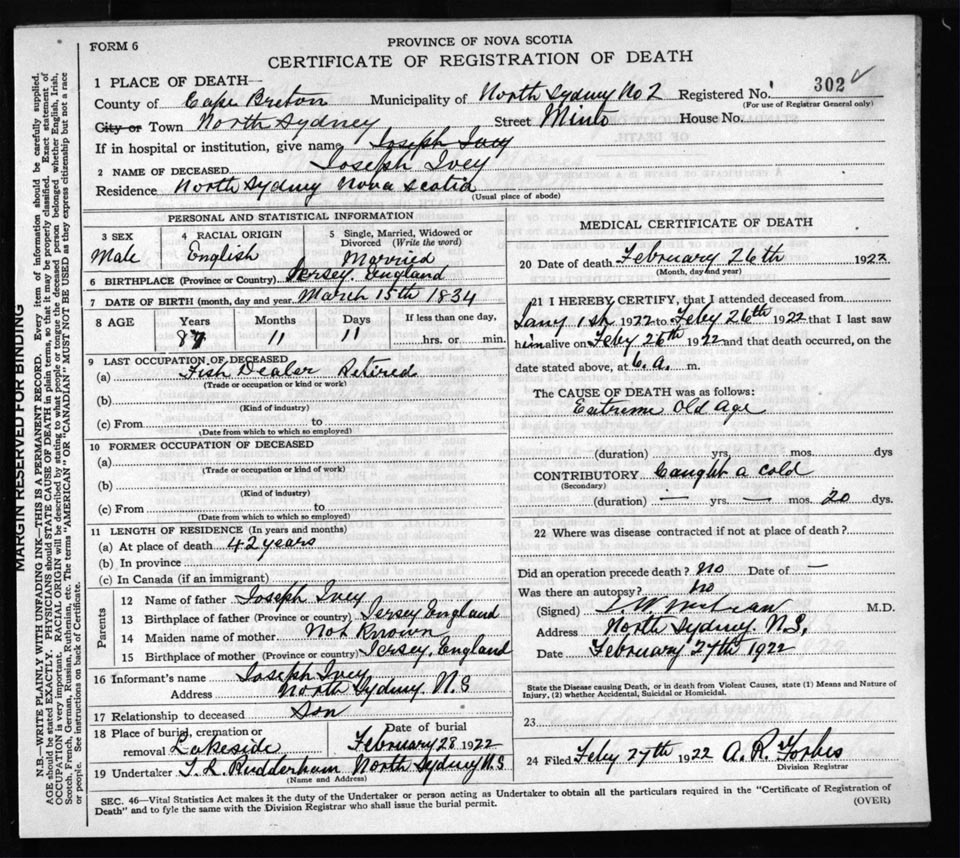 FORM 6
PROVINCE OF NOVA SCOTIA
CERTIFICATE OF REGISTRATION OF DEATH
1 PLACE OF DEATH—
Registered No. 302
(For use of Registrar General only)
County of Cape Breton Municipality of North Sydney No 2
City or Town North Sydney Street Minto House No.
If in hospital or institution, give name Joseph Ivey
2 NAME OF DECEASED Joseph Ivey
Residence North Sydney Nova Scotia
(Usual place of abode)
PERSONAL AND STATISTICAL INFORMATION
3 SEX 4 RACIAL ORIGIN 5 Single, Married, Widowed or Divorced (Write the word)
Male English Married
6 BIRTHPLACE (Province or Country) Jersey. England
7 DATE OF BIRTH (month, day and year) March 15th 1834
8 AGE Years Months Days If less than one day,
87 11 11 hrs. or min.
9 LAST OCCUPATION OF DECEASED
(a) Fish Dealer Retired
(Trade or occupation or kind of work)
(b)
(Kind of industry)
(c) From to
(Date from which to which so employed)
10 FORMER OCCUPATION OF DECEASED
(a)
(Trade or occupation or kind of work)
(b)
(Kind of industry)
(c) From to
(Date from which to which so employed)
11 LENGTH OF RESIDENCE (In years and months)
(a) At place of death 42 years
(b) In province
(c) In Canada (if an immigrant)
Parents
12 Name of father Joseph Ivey
13 Birthplace of father (Province or country) Jersey England
14 Maiden name of mother Not Known
15 Birthplace of mother (Province or country) Jersey. England
16 Informant's name Joseph Ivey
Address North Sydney. N.S
17 Relationship to deceased Son
18 Place of burial, cremation or removal Lakeside Date of burial February 28 1922
19 Undertaker Rudderham North Sydney N.S
(Name and Address)
MEDICAL CERTIFICATE OF DEATH
20 Date of death February 26th 1922
(Month, day and year)
21 I HEREBY CERTIFY, that I attended deceased from
Jany 1st 1922 to Feby 26th 1922 that I last saw
him alive on Feby 26th 1922 and that death occurred, on the
date stated above, at 6. a. m.
The CAUSE OF DEATH was as follows:
Extreme Old Age
(duration) yrs. mos. dys
CONTRIBUTORY Caught a cold
(Secondary)
(duration) — yrs. — mos. 20 dys.
22 Where was disease contracted if not at place of death?
Did an operation precede death? No Date of —
Was there an autopsy? No
(Signed) M.D.
Address North Sydney. N.S.
Date February 27th 1922
State the Disease causing Death, or in death from Violent Causes, state (1) Means and Nature of
Injury, (2) whether Accidental, Suicidal or Homicidal.
23
24 Filed Feby 27th 1922 A. R. Forbes
Division Registrar
SEC. 46—Vital Statistics Act makes it the duty of the Undertaker or person acting as Undertaker to obtain all the particulars required in the "Certificate of Registration of
Death" and to fyle the same with the Division Registrar who shall issue the burial permit.
(OVER)
MARGIN RESERVED FOR BINDING
N.B.—WRITE PLAINLY WITH UNFADING INK—THIS IS A PERMANENT RECORD. Every item of information should be carefully supplied.
AGE should be stated EXACTLY. PHYSICIANS should STATE CAUSE OF DEATH in plain terms, so that it may be properly classified. Exact statement of
OCCUPATION is very important. RACIAL ORIGIN will be described by stating to what people or tongue the deceased person belonged, whether English, Irish,
Scotch, French, German, Russian, Ruthenian, etc. The terms "AMERICAN" OR "CANADIAN" MUST NOT BE USED as they express citizenship but not a race
or people. See instructions on back of Certificate.